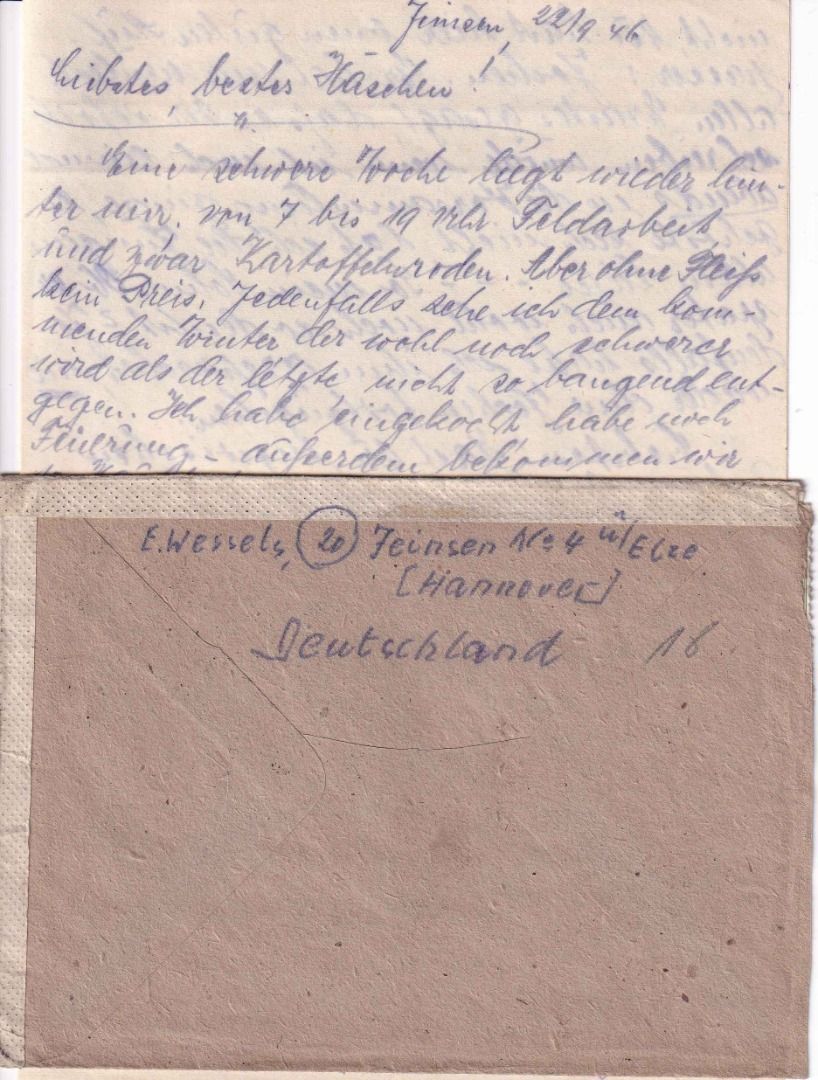 Jeinsen, 22/9. 46
Liebstes, bestes Häschen!
Eine schwere Woche liegt wieder hin-
ter mir, von 7 bis 19 Uhr Feldarbeit
und zwar Kartoffelnroden. Aber ohne Fleiß
kein Preis. Jedenfalls sehe ich dem kom-
menden Winter der wohl noch schwerer
wird als der letzte, nicht so bangend ent-
gegen. Ich habe eingekocht, habe noch
Feuerung - außerdem bekommen wir
E. Wessels, (20) Jeinsen No 4 ü/Elze
[Hannover]
Deutschland 16